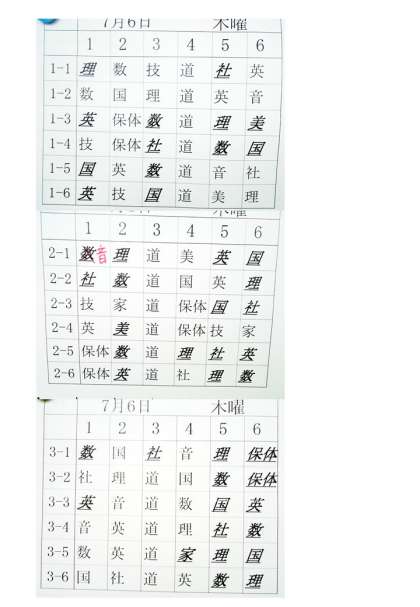 7月6日 木曜
1 2 3 4 5 6
1-1 理 数 技 道 社 英
1-2 数 国 理 道 英 音
1-3 英 保体 数 道 理 美
1-4 技 保体 社 道 数 国
1-5 国 英 数 道 音 社
1-6 英 技 国 道 美 理
木曜
1 2 3 4 5 6
2-1 数 音 理 道 美 英 国
2-2 社 数 道 国 英 理
2-3 技 家 道 保体 国 社
2-4 英 美 道 保体 技 家
2-5 保体 数 道 理 社 英
2-6 保体 英 道 社 理 数
7月6日 木曜
1 2 3 4 5 6
3-1 数 国 社 音 理 保体
3-2 社 理 道 国 数 保体
3-3 英 音 道 数 国 英
3-4 音 英 道 理 社 数
3-5 数 英 道 家 理 国
3-6 国 社 道 英 数 理